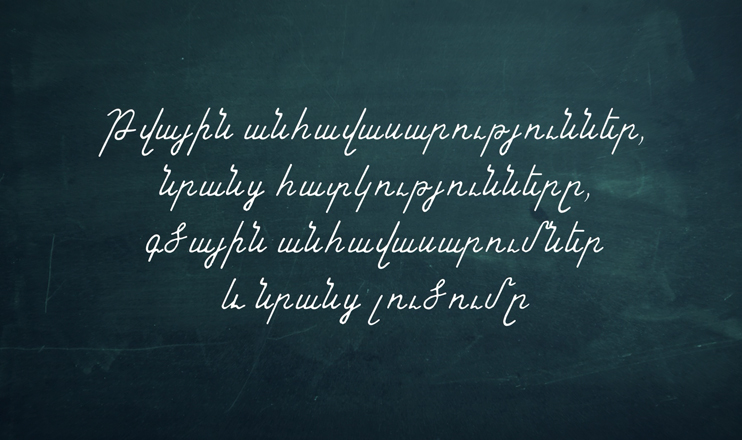 Թվային անհավասարություններ,
նրանց հատկությունները,
գծային անհավասարումներ
և նրանց լուծումը